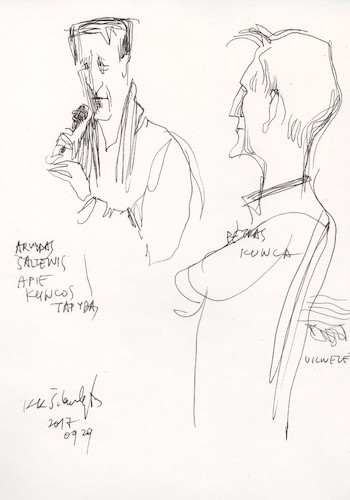 ARVYDAS
ŠALTENIS
APIE
KUNCOS
TAPYBĄ
PETRAS
KUNCA
2017
09 29